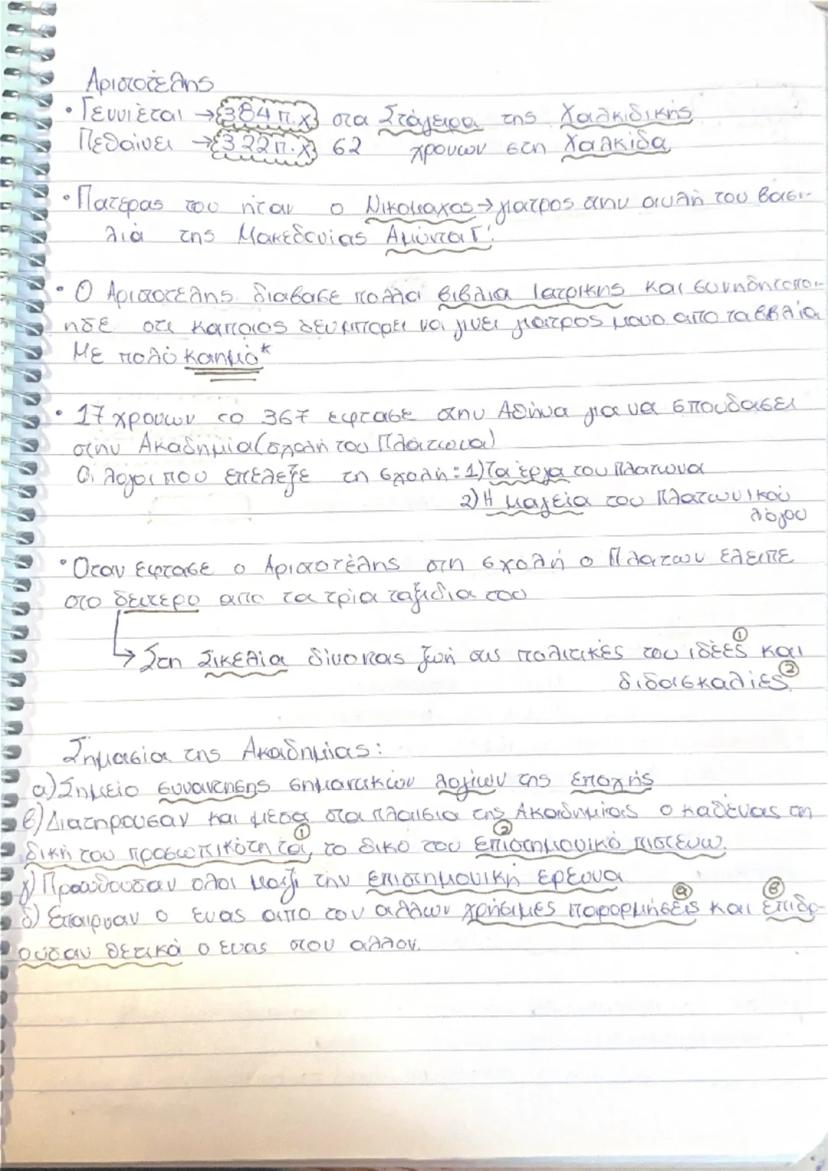 Αριστοτέλης
• Γεννιέται → 384 π.χ στα Στάγειρα της Χαλκιδικής
Πεθαίνει → 322 π.χ 62 χρονων στη Χαλκίδα
• Πατέρας του ήταν ο Νικομαχος → γιατρος στην αυλή του βασι-
λιά της Μακεδονίας Αμύντα Γ'.
• Ο Αριστοτέλης διαβασε πολλα βιβλια Ιατρικης και συνηδητοποι-
ησε οτι καποιος δεν μπορει να γινει γιατρος μονο απο τα βιβλία
Με πολύ καημό*
• 17 χρονων το 367 εφτασε στην Αθήνα για να σπουδασει
στην Ακαδημία (σχολή του Πλατωνα)
Οι λογοι που επελεξε τη σχολή: 1) Τα έργα του Πλατωνα
2) Η μαγεία του Πλατωνικού
λόγου
• Οταν εφτασε ο Αριστοτέλης στη σχολή ο Πλατων ελειπε
στο δευτερο απο τα τρία ταξιδια του
→ Στη Σικελία δίνοντας ζωή στις πολιτικές του ιδέες ① και
διδασκαλίες ②
Σημασία της Ακαδημίας:
α) Σημείο συναντησης σημαντικών λογίων της εποχής
β) Διατηρουσαν και μέσα στα πλαισια της Ακαδημίας ο καθένας τη
δική του προσωπικότητα ①, το δικο του επιστημονικό ② πιστευω.
γ) Προωθουσαν ολοι μαζί την επιστημονική έρευνα
δ) Επαιρναν ο ενας απο τον αλλων χρήσιμες παρορμήσεις ⓐ και επιδρ- ⓑ
ούσαν θετικά ο ενας στον αλλον.